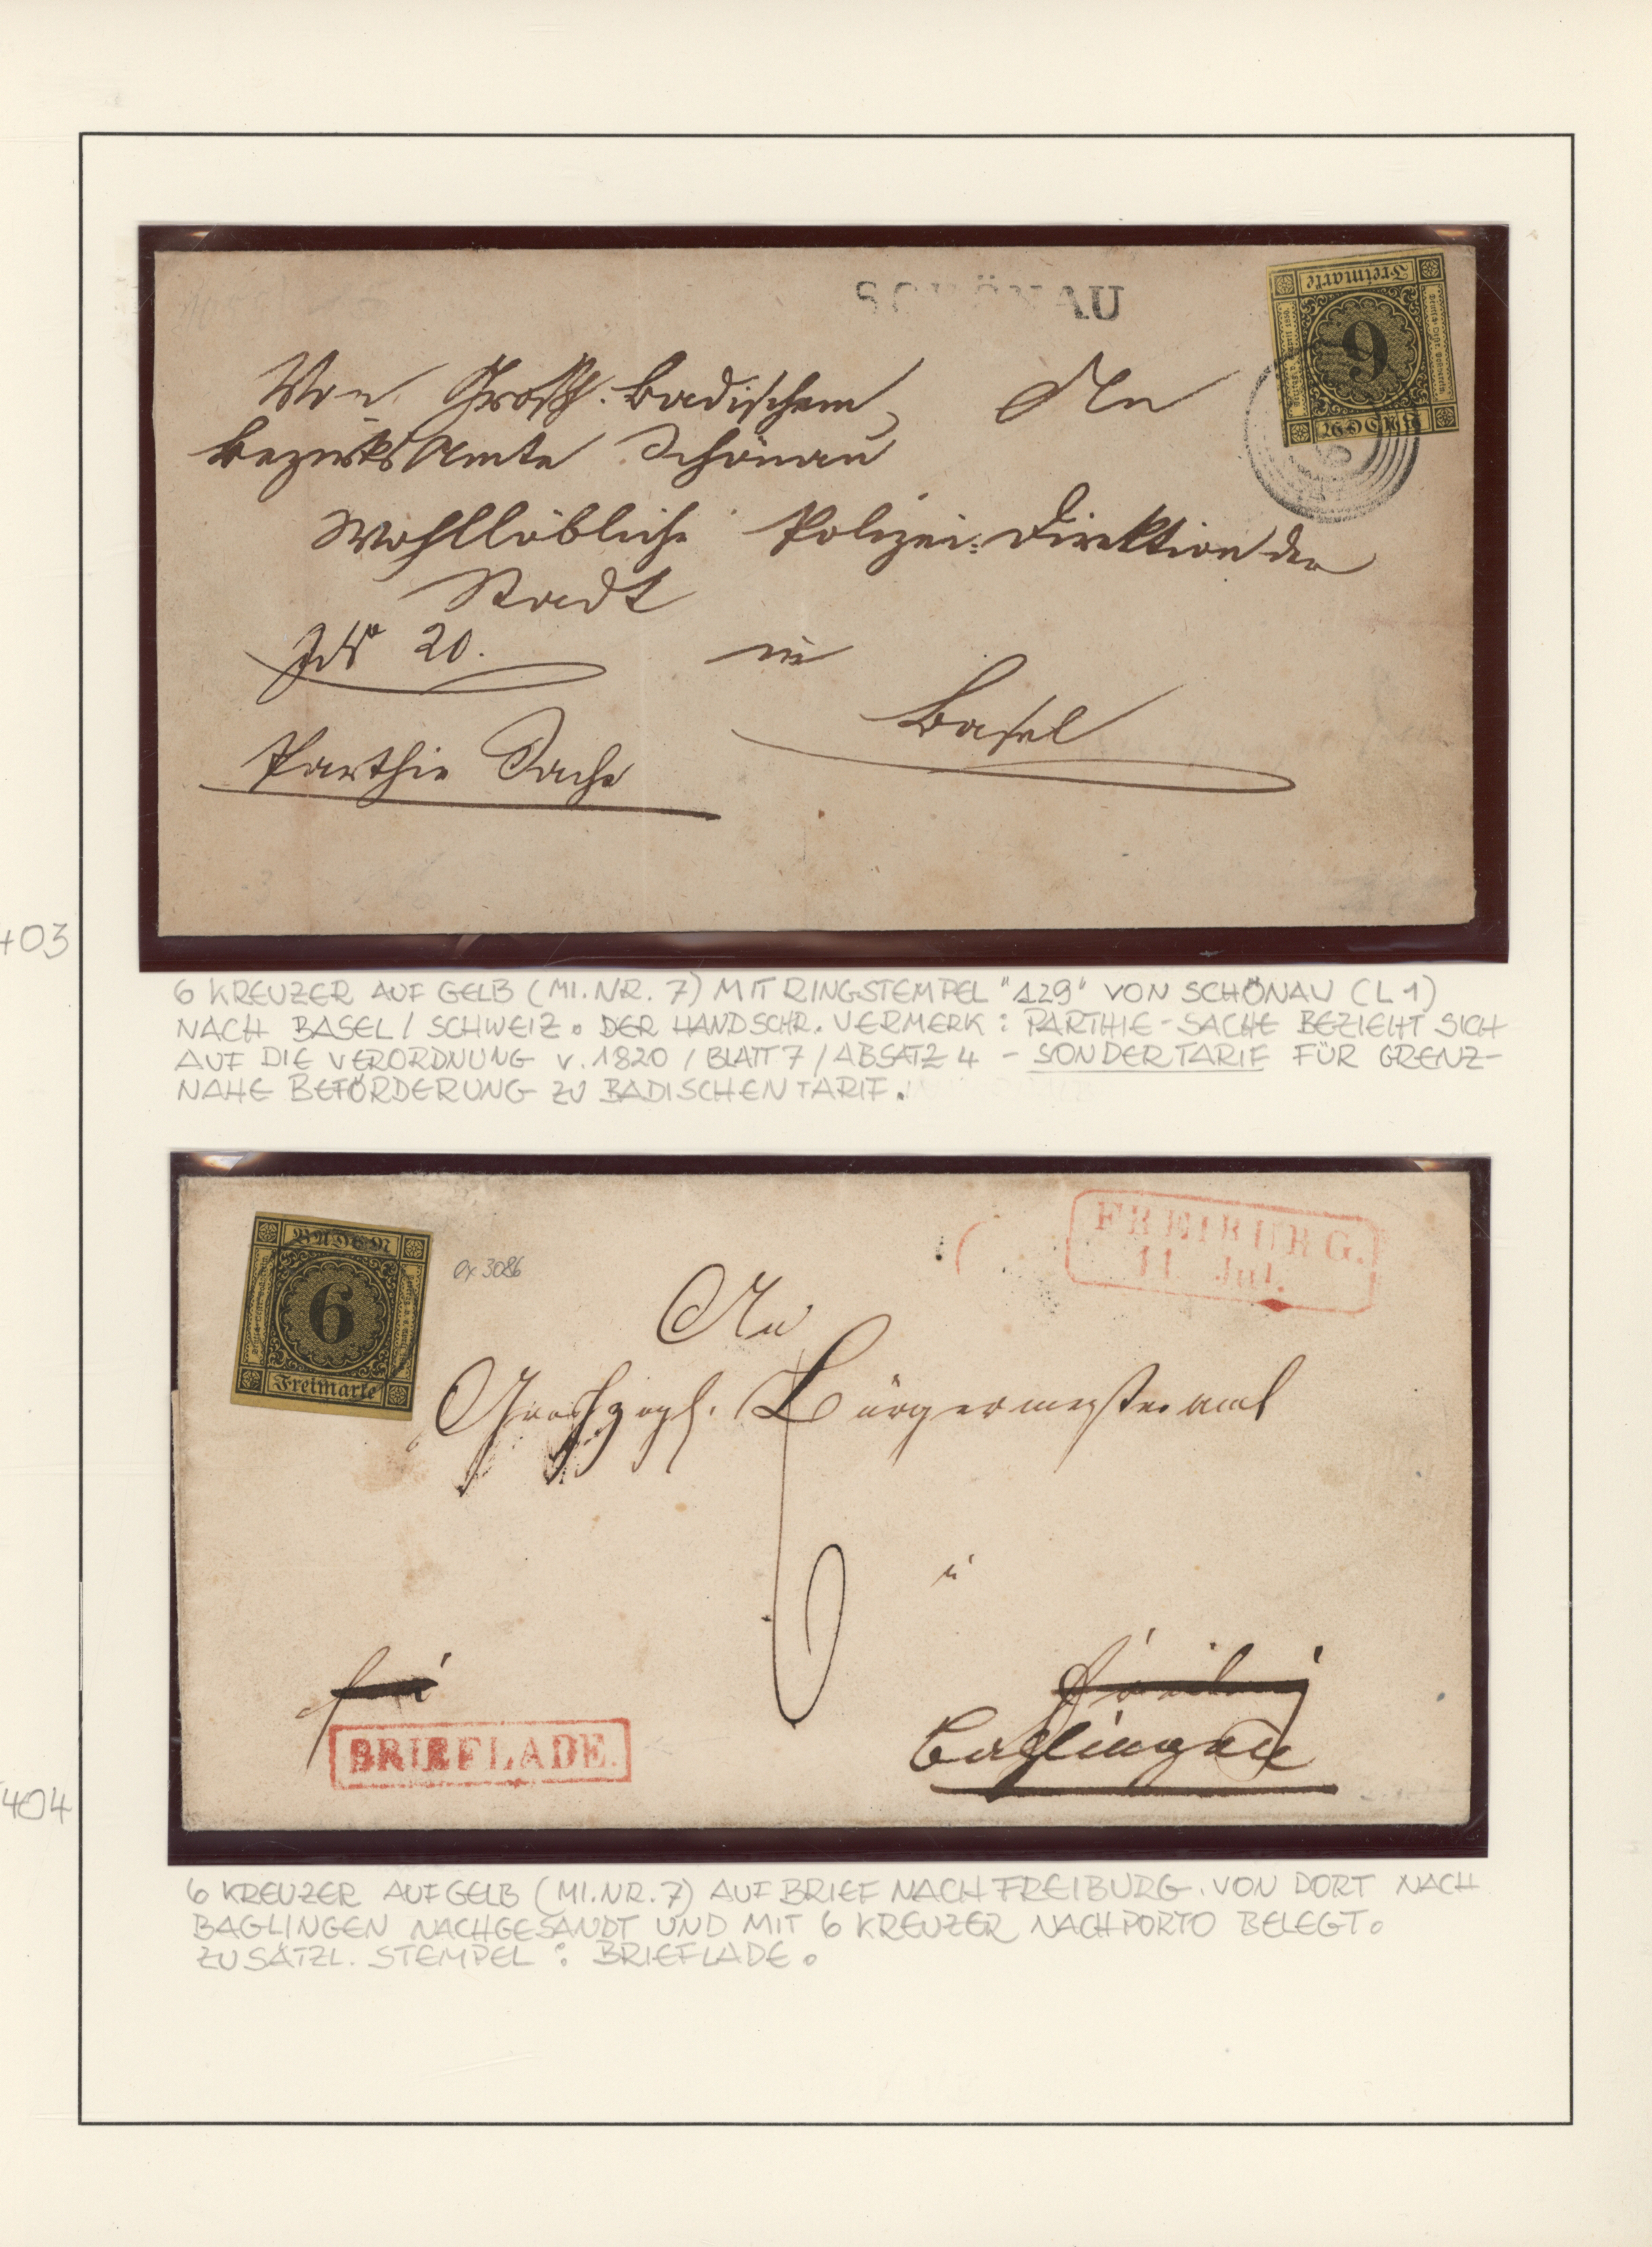 SCHÖNAU
Freimarke
6
BADEN
Von Großh. Badischem An
Bezirks Amte Schönau
Wohllöbliche Polizei-Direktion der
Stadt
20. in
Basel
Parthie Sache
403
6 KREUZER AUF GELB (MI. NR. 7) MIT RINGSTEMPEL "129" VON SCHÖNAU (L 1)
NACH BASEL / SCHWEIZ. DER HANDSCHR. VERMERK: PARTHIE-SACHE BEZIEHT SICH
AUF DIE VERORDNUNG V. 1820 / BLATT 7 / ABSATZ 4 – SONDERTARIF FÜR GRENZ-
NAHE BEFÖRDERUNG ZU BADISCHEN TARIF.
BADEN
6
Freimarke
ex 3086
FREIBURG.
11. Jul.
An
Großherzogl. Bürgermeisteramt
6
frei
Freiburg
BRIEFLADE.
404
6 KREUZER AUF GELB (MI. NR. 7) AUF BRIEF NACH FREIBURG. VON DORT NACH
BAGLINGEN NACHGESANDT UND MIT 6 KREUZER NACHPORTO BELEGT.
ZUSÄTZL. STEMPEL: BRIEFLADE.